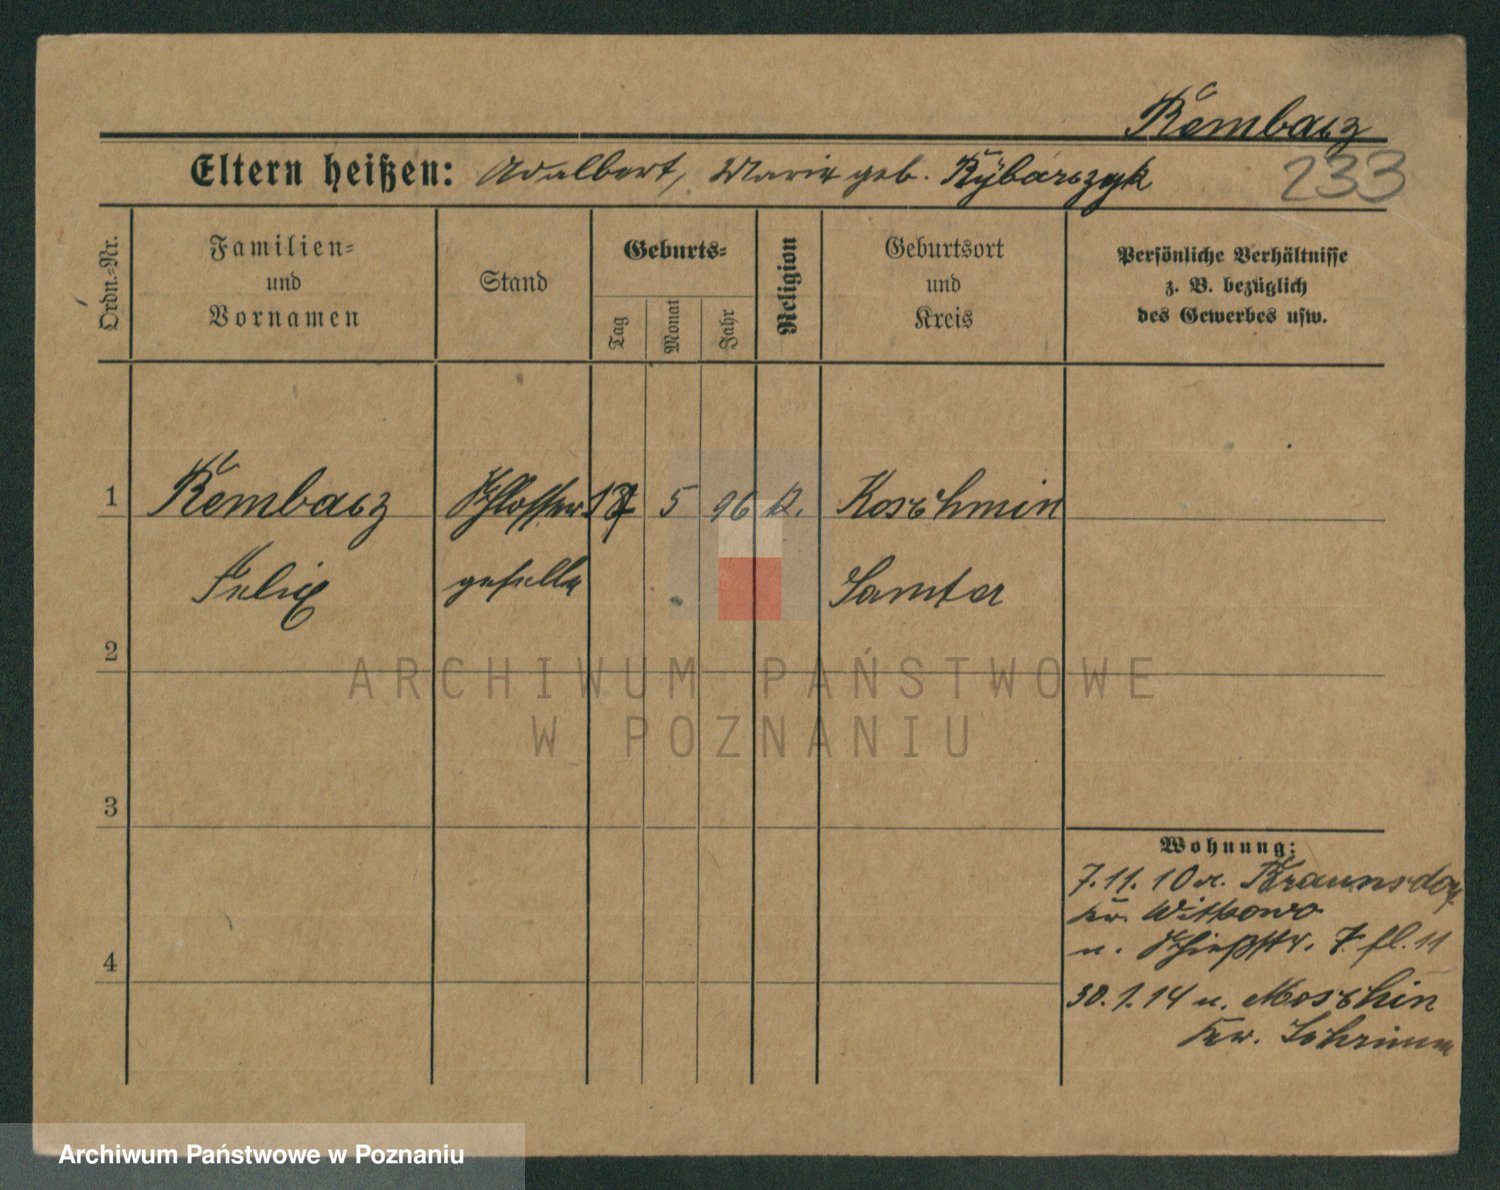 Rembacz
Eltern heißen: Adalbert, Marie geb. Rybarczyk
233
Ordn.=Nr.
Familien=
und
Vornamen
Stand
Geburts=
Tag
Monat
Jahr
Religion
Geburtsort
und
Kreis
Persönliche Verhältnisse
z. B. bezüglich
des Gewerbes usw.
1 Rembacz Schlosser 5 96 K. Koschmin
Felix geselle Samter
2
ARCHIWUM PAŃSTWOWE
W POZNANIU
3
Wohnung:
7.11.10 Braunsdorf
Kr. Witkowo
n. Schießstr. 7 fl. 11
4
30.1.14 n. Moschin
Kr. Schrimm
Archiwum Państwowe w Poznaniu